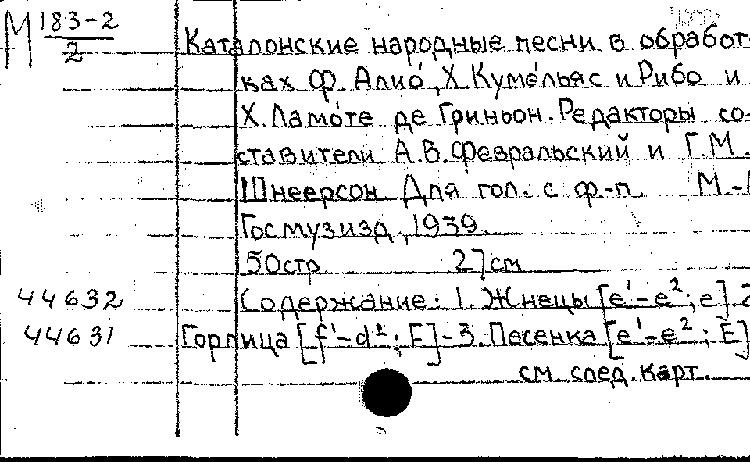 М 183-2
2
Каталонские народные песни в обработ-
ках Ф. Алио́, Х. Куме́льяс и Рибо и
Х. Ламо́те де Гриньон. Редакторы со-
ставители А.В. Февральский и Г.М.
Шнеерсон Для гол. с ф-п М.-Л
Госмузизд, 1939.
50стр 27см
44632 Содержание: 1. Жнецы [e¹-e²; e]. 2
44631 Горлица [f¹-d²; F]-3. Песенка [e¹-e²; E]
см. след. карт.